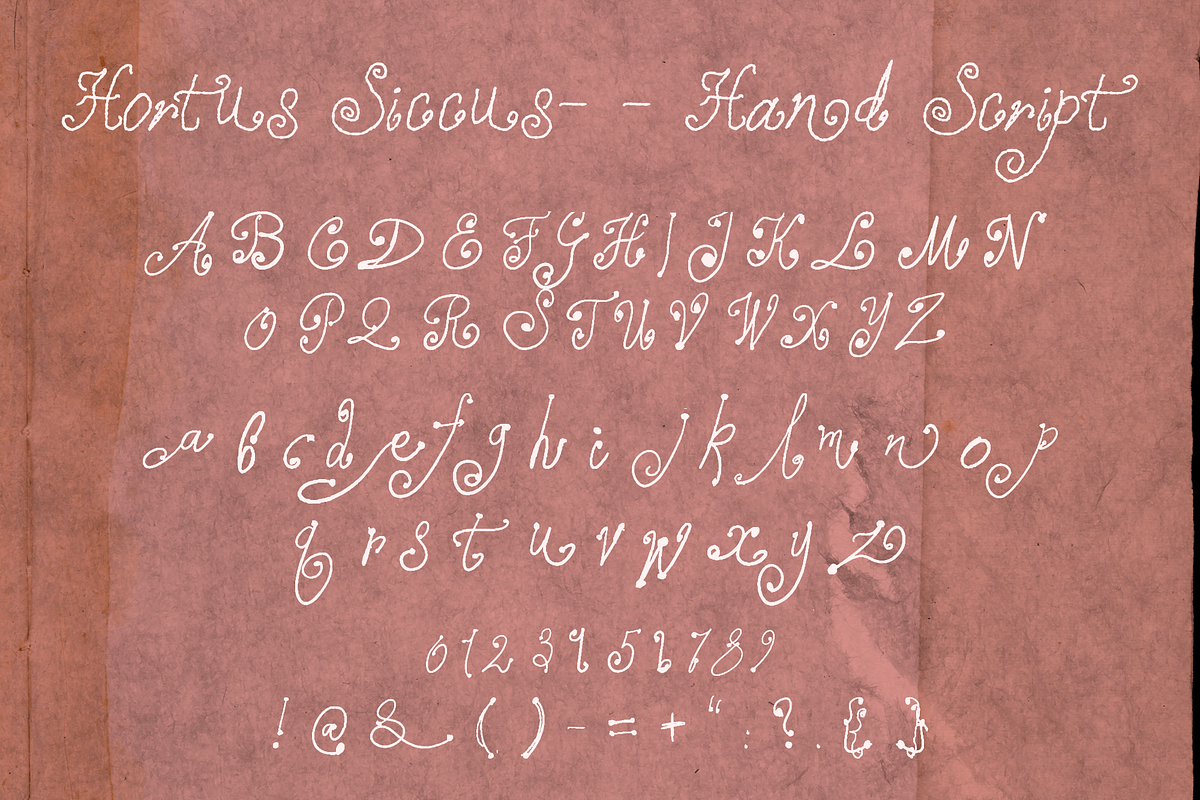 Hortus Siccus- - Hand Script
A B C D E F G H I J K L M N
O P Q R S T U V W X Y Z
a b c d e f g h i j k l m n o p
q r s t u v w x y z
0 1 2 3 4 5 6 7 8 9
! @ & ( ) - = + “ : ? . { }